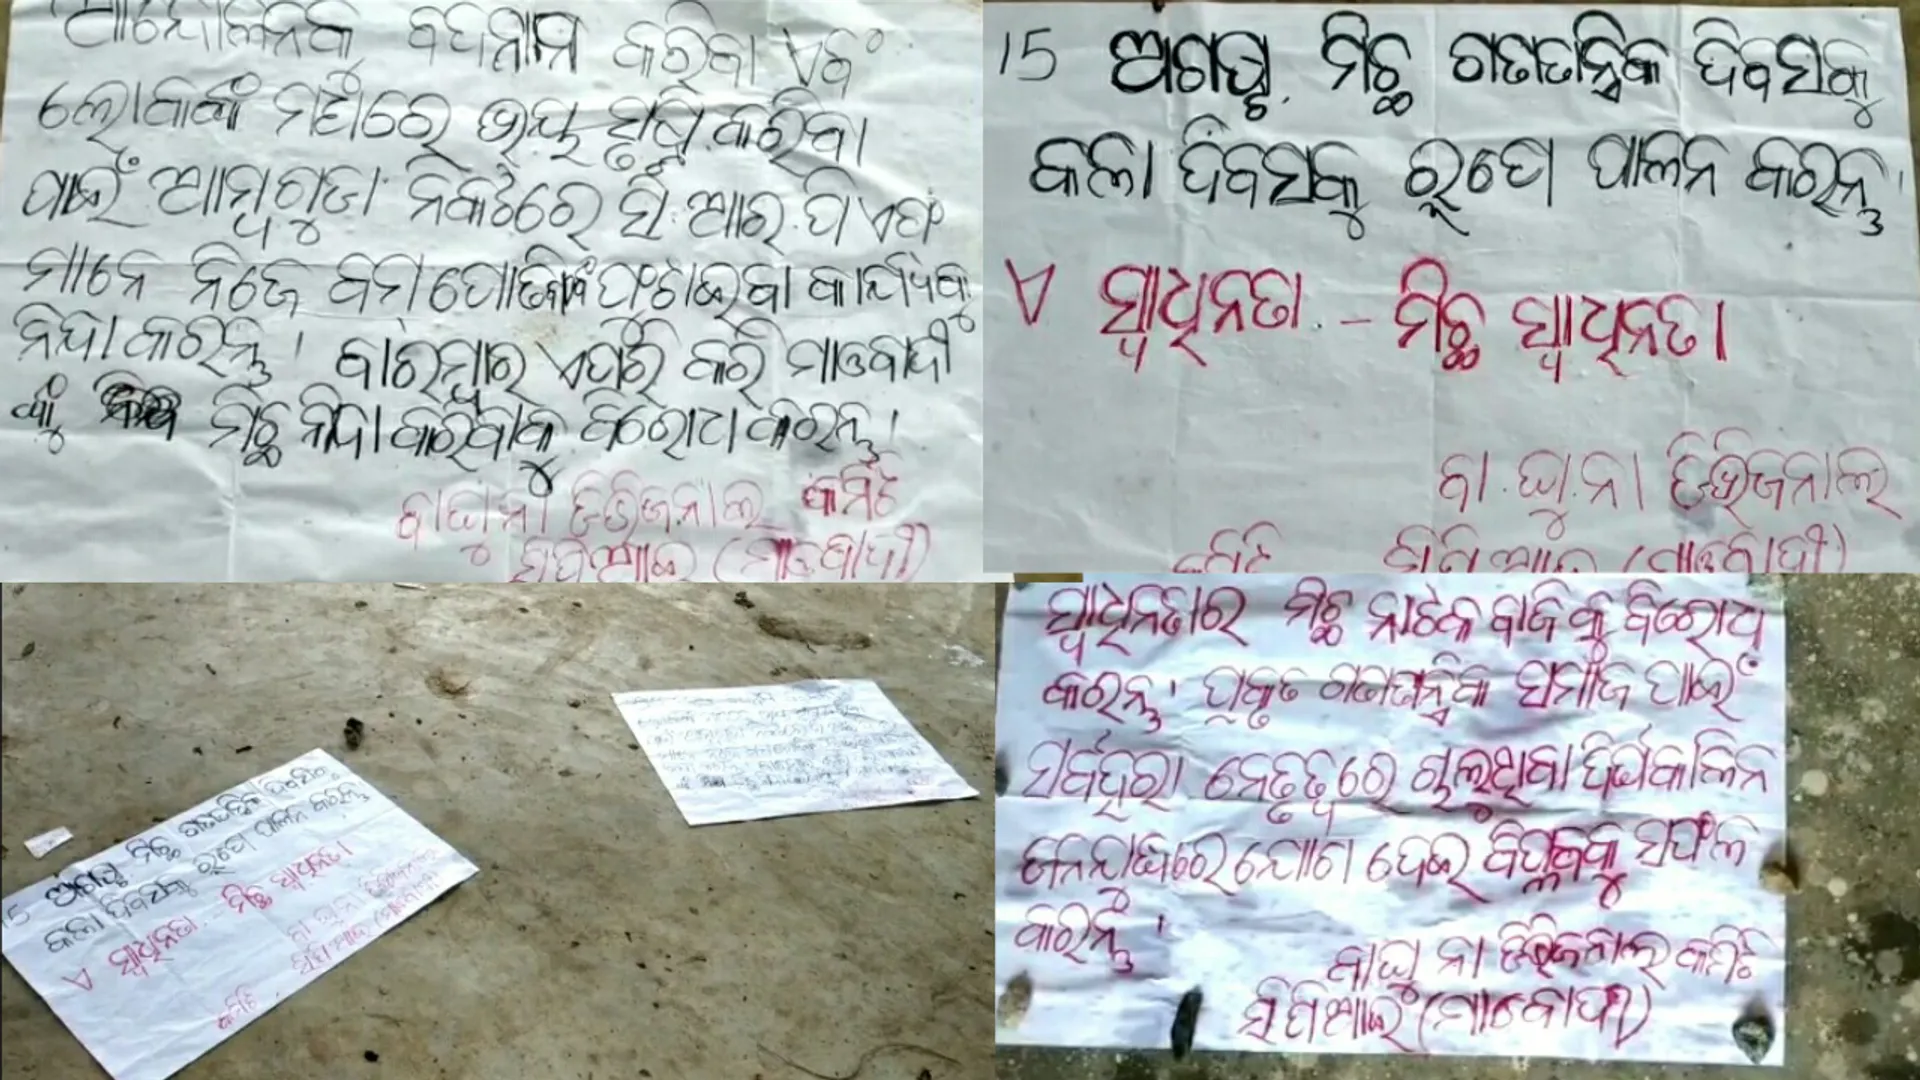 ଆନ୍ଦୋଳନକୁ ବଦନାମ କରିବା ଏବଂ
ଲୋକଙ୍କ ମଧ୍ୟରେ ଭୟ ସୃଷ୍ଟି କରିବା
ପାଇଁ ଆମ୍ବଗୁଡା ନିକଟରେ ସି.ଆର.ପି ଏଫ
ମାନେ ନିଜେ ବମ ପୋତି ଫଟାଇବା କାର୍ଯ୍ୟକୁ
ନିନ୍ଦା କରନ୍ତୁ । ବାରମ୍ବାର ଏପରି କରି ମାଓବାଦୀ
ଙ୍କୁ ମିଚ୍ଛ ନିନ୍ଦା କରିବାକୁ ବିରୋଧ କରନ୍ତୁ ।
ବାଘୁନା ଡିଭିଜନାଲ କମିଟି
ସିପିଆଇ (ମାଓବାଦୀ)
15 ଅଗଷ୍ଟ ମିଚ୍ଛ ଗଣତାନ୍ତ୍ରିକ ଦିବସକୁ
କଲା ଦିବସକୁ ରୂପେ ପାଳନ କରନ୍ତୁ ।
ଏ ସ୍ୱାଧିନତା - ମିଚ୍ଛ ସ୍ୱାଧିନତା ।
ବା.ଘୁ.ନା ଡିଭିଜନାଲ
କମିଟି ସିପିଆଇ (ମାଓବାଦୀ)
15 ଅଗଷ୍ଟ ମିଚ୍ଛ ଗଣତାନ୍ତ୍ରିକ ଦିବସକୁ
କଲା ଦିବସକୁ ରୂପେ ପାଳନ କରନ୍ତୁ
ଏ ସ୍ୱାଧିନତା - ମିଚ୍ଛ ସ୍ୱାଧିନତା ।
ବା ଘୁ ନା ଡିଭିଜନାଲ
କମିଟି ସିପିଆଇ (ମାଓବାଦୀ)
ସ୍ୱାଧିନତାର ମିଚ୍ଛ ନାଟକ ବାଜିକୁ ବିରୋଧ
କରନ୍ତୁ । ପ୍ରକୃତ ଗଣତାନ୍ତ୍ରିକ ସମାଜ ପାଇଁ
ସର୍ବହରା ନେତୃତ୍ୱରେ ଚାଲୁଥିବା ଦିର୍ଘକାଳିନ
ଜନଯୁଦ୍ଧରେ ଯୋଗ ଦେଇ ବିପ୍ଳବକୁ ସଫଳ
କରନ୍ତୁ ।
ବାଘୁ ନା ଡିଭିଜନାଲ କମିଟି
ସିପିଆଇ (ମାଓବାଦୀ)